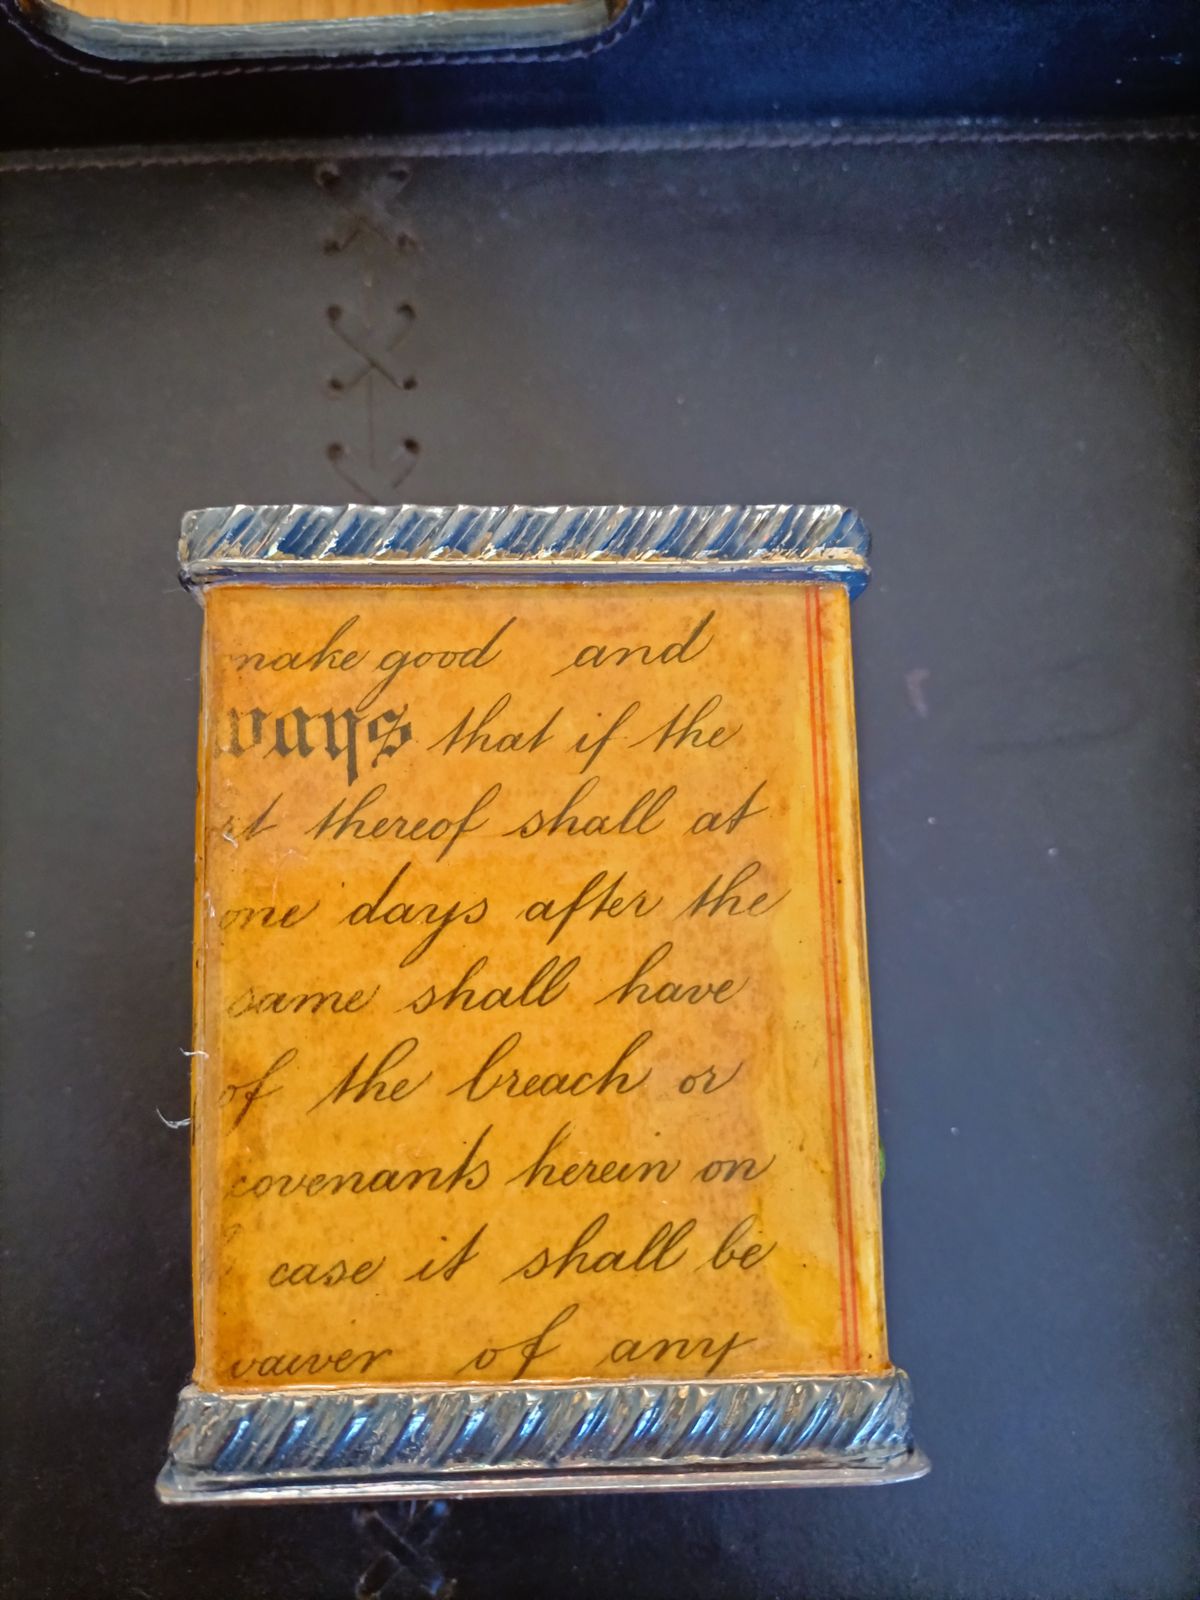 make good and
ways that if the
rt thereof shall at
one days after the
same shall have
of the breach or
covenants herein on
case it shall be
waiver of any